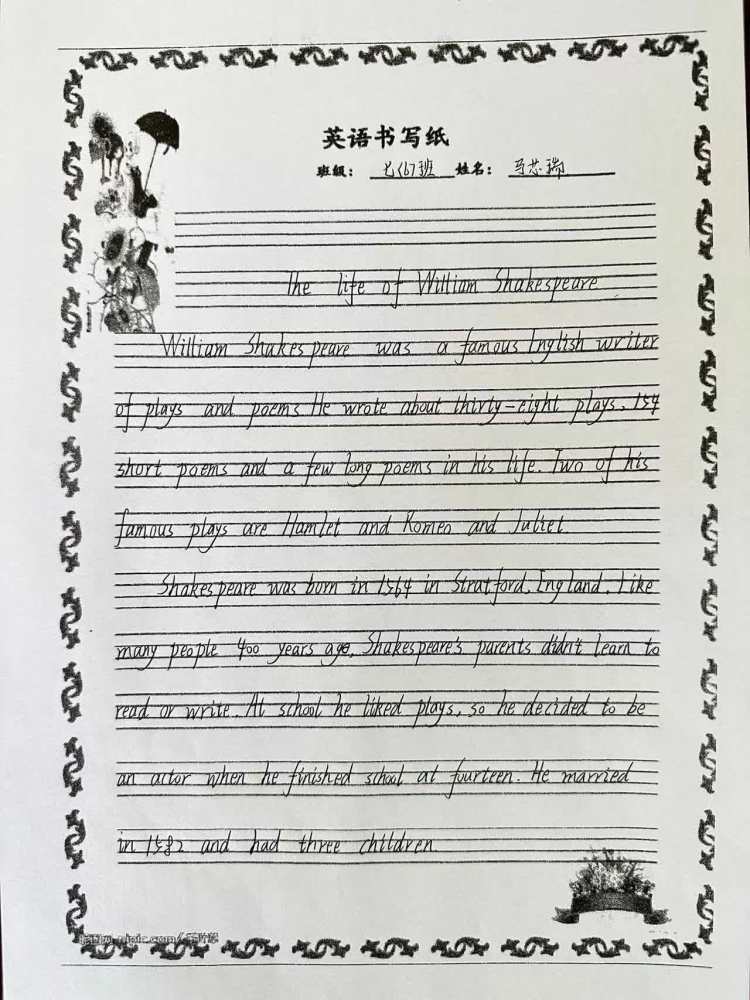 英语书写纸
班级: 七(6)班 姓名: 马芯瑞
The life of William Shakespeare
William Shakespeare was a famous English writer
of plays and poems He wrote about thirty-eight plays, 154
short poems and a few long poems in his life. Two of his
famous plays are Hamlet and Romeo and Juliet.
Shakespeare was born in 1564 in Stratford, England. Like
many people 400 years ago, Shakespeare's parents didn't learn to
read or write. At school he liked plays, so he decided to be
an actor when he finished school at fourteen. He married
in 1582 and had three children.